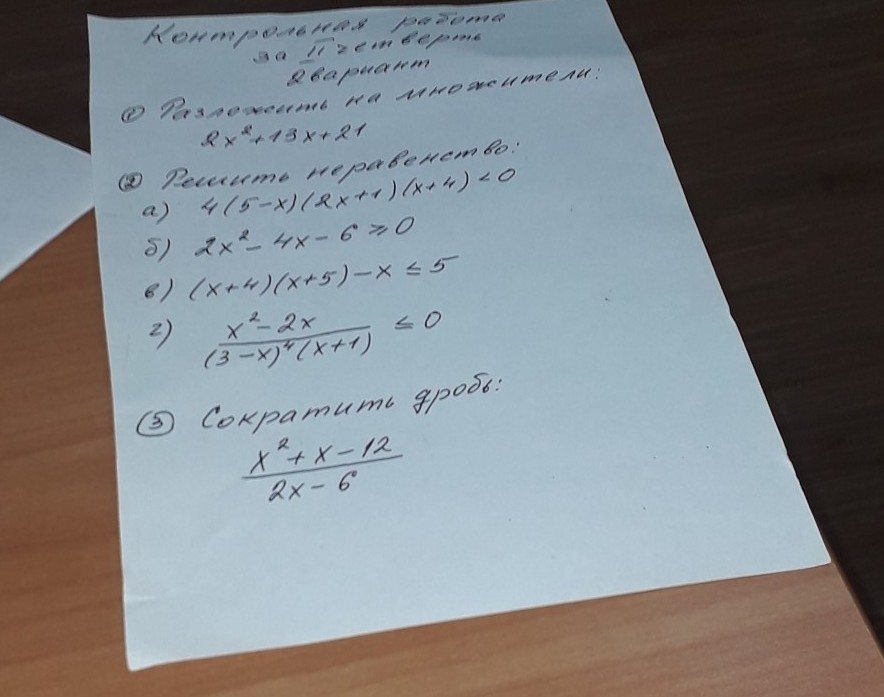 Контрольная работа
за II четверть
2 вариант
① Разложить на множители:
2x²+13x+21
② Решить неравенство:
а) 4(5-x)(2x+1)(x+4)<0
б) 2x²-4x-6≥0
в) (x+4)(x+5)-x≤5
г) x²-2x / (3-x)⁴(x+1) ≤0
③ Сократить дробь:
x²+x-12
2x-6